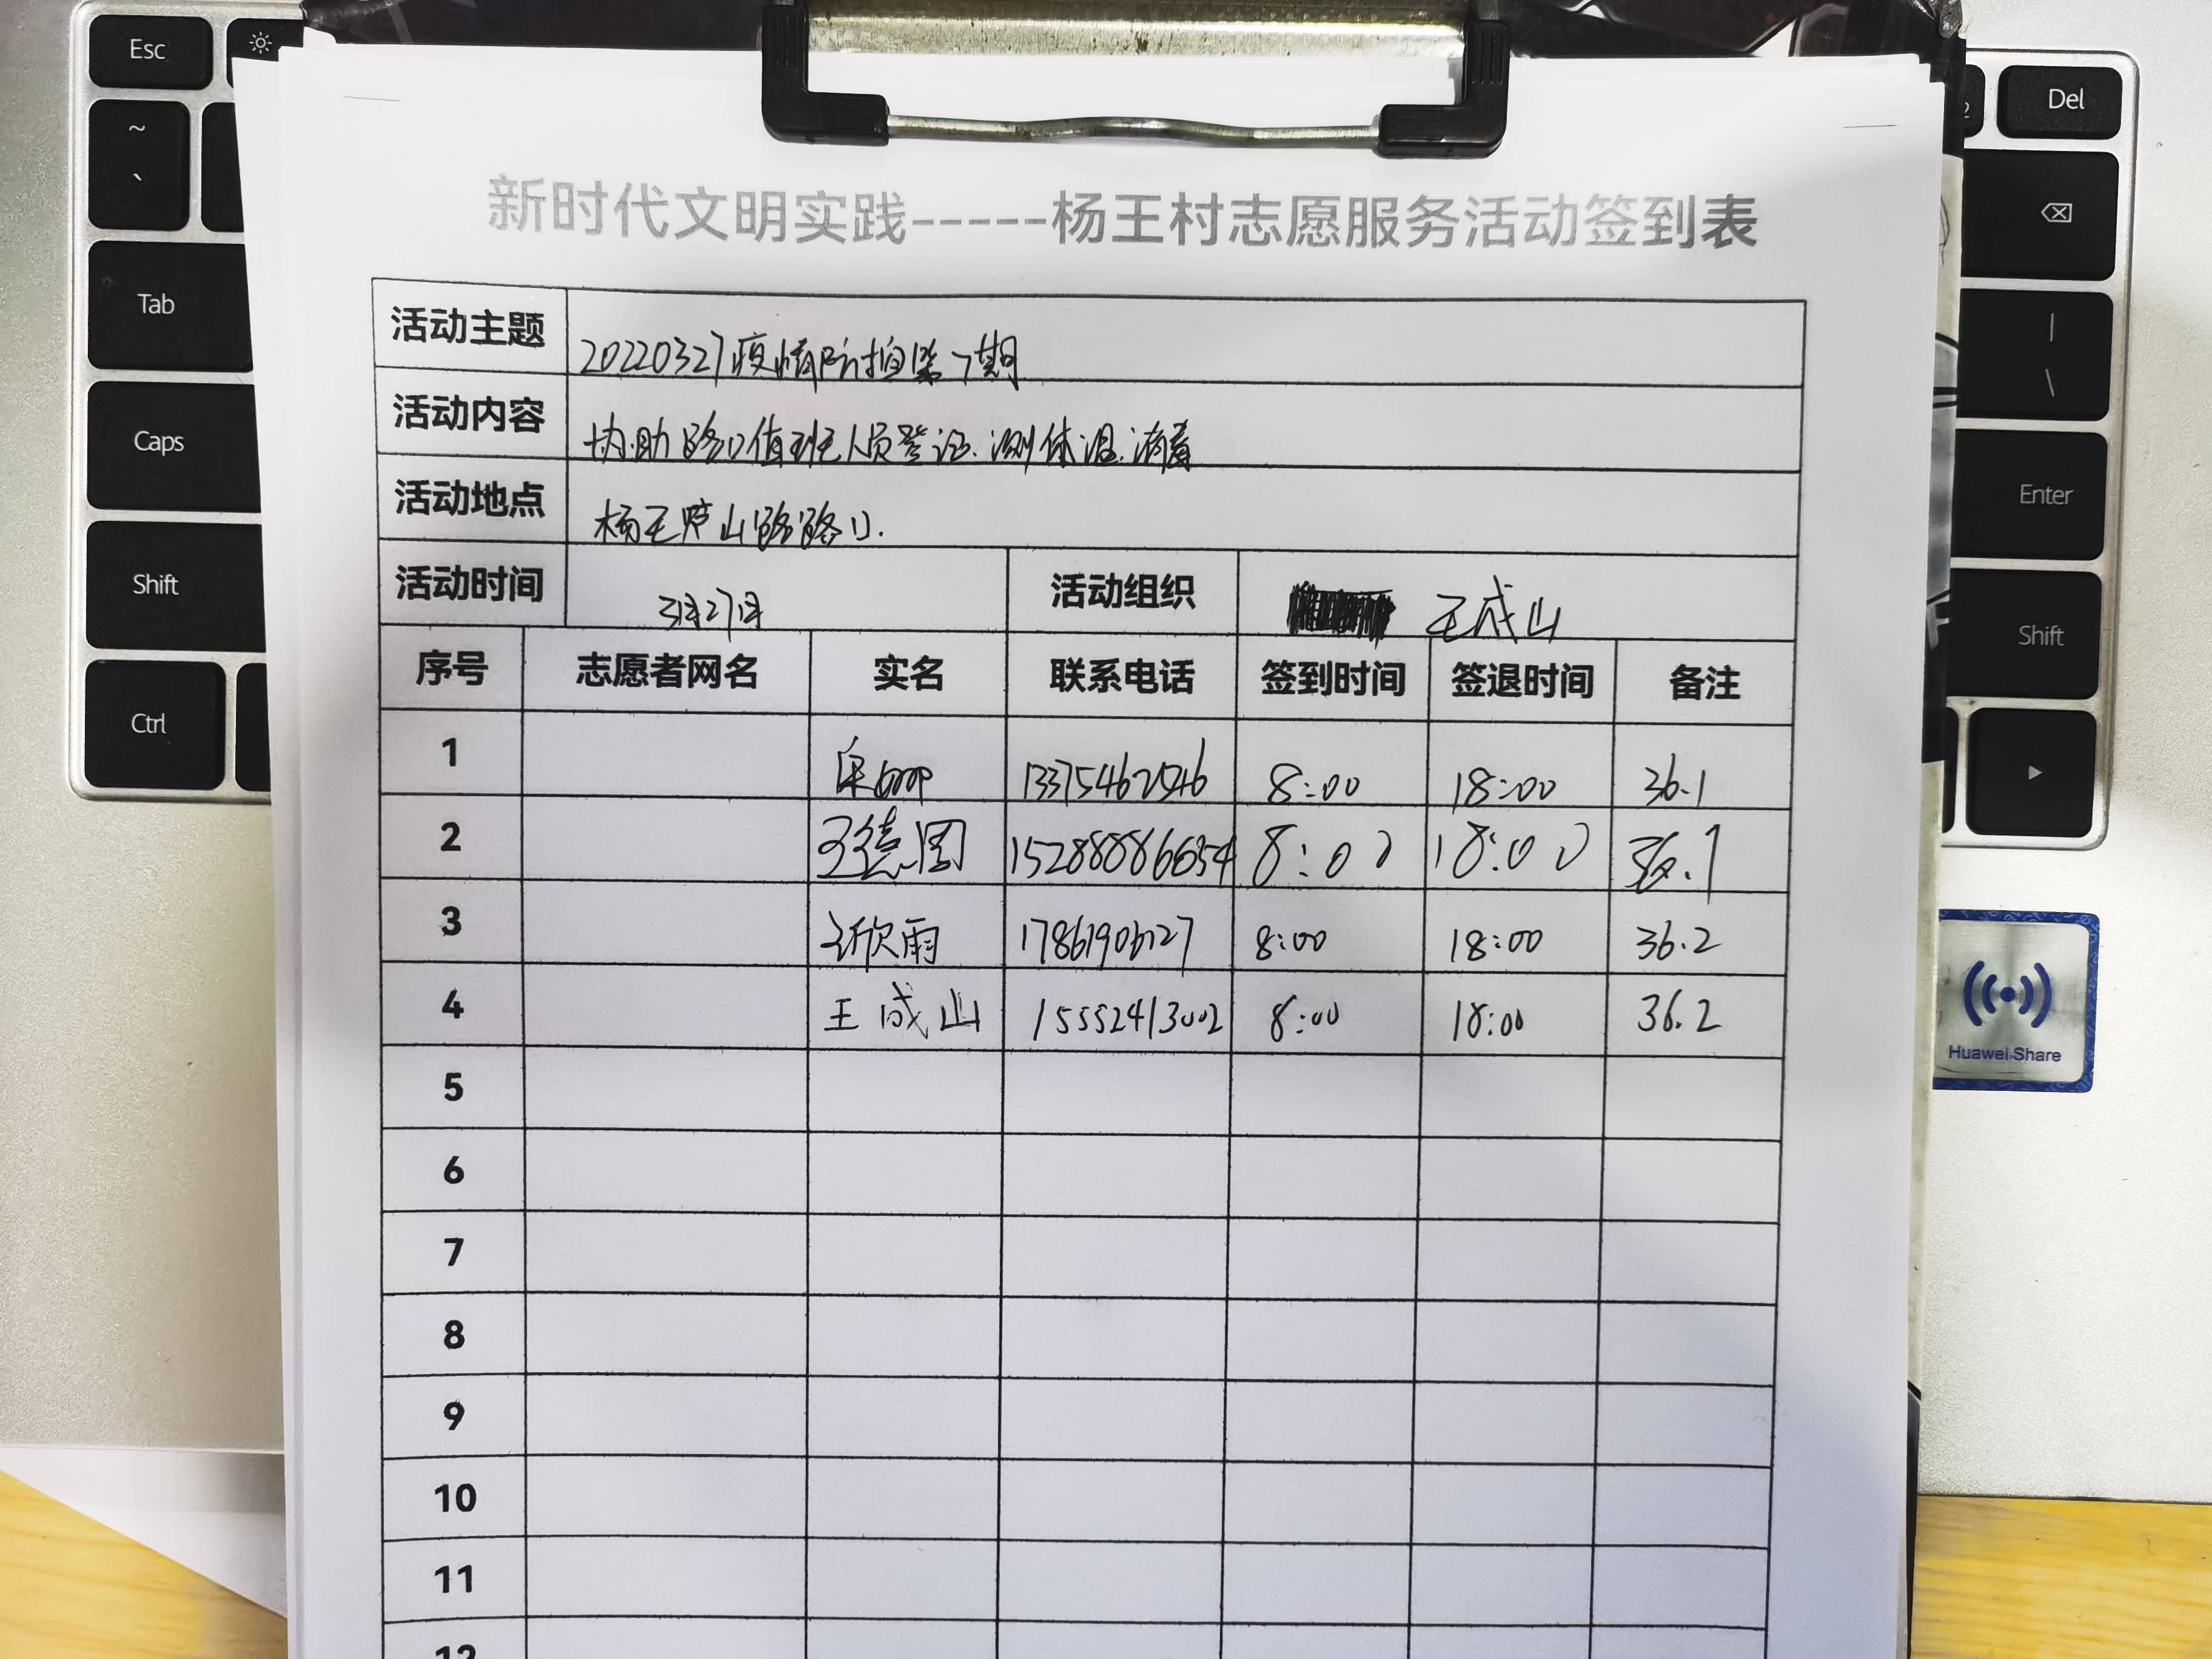 Esc
Del
~
`
Tab
|
\
Caps
Enter
Shift
Shift
Ctrl
Huawei Share
新时代文明实践-----杨王村志愿服务活动签到表
活动主题 20220327疫情防控第7期
活动内容 协助路口值班人员登记.测体温.消毒
活动地点 杨王芦山路路口.
活动时间 3月27日 活动组织 王成山
序号 志愿者网名 实名 联系电话 签到时间 签退时间 备注
1 13375462546 8:00 18:00 36.1
2 王德周 15288886654 8:00 18:00 36.1
3 欣雨 17861906127 8:00 18:00 36.2
4 王成山 15552413002 8:00 18:00 36.2
5
6
7
8
9
10
11
12